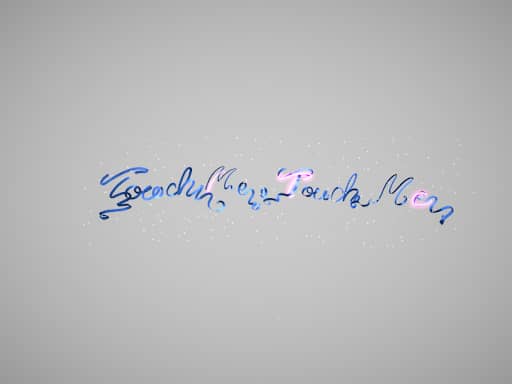 Touch Me, Touch Me